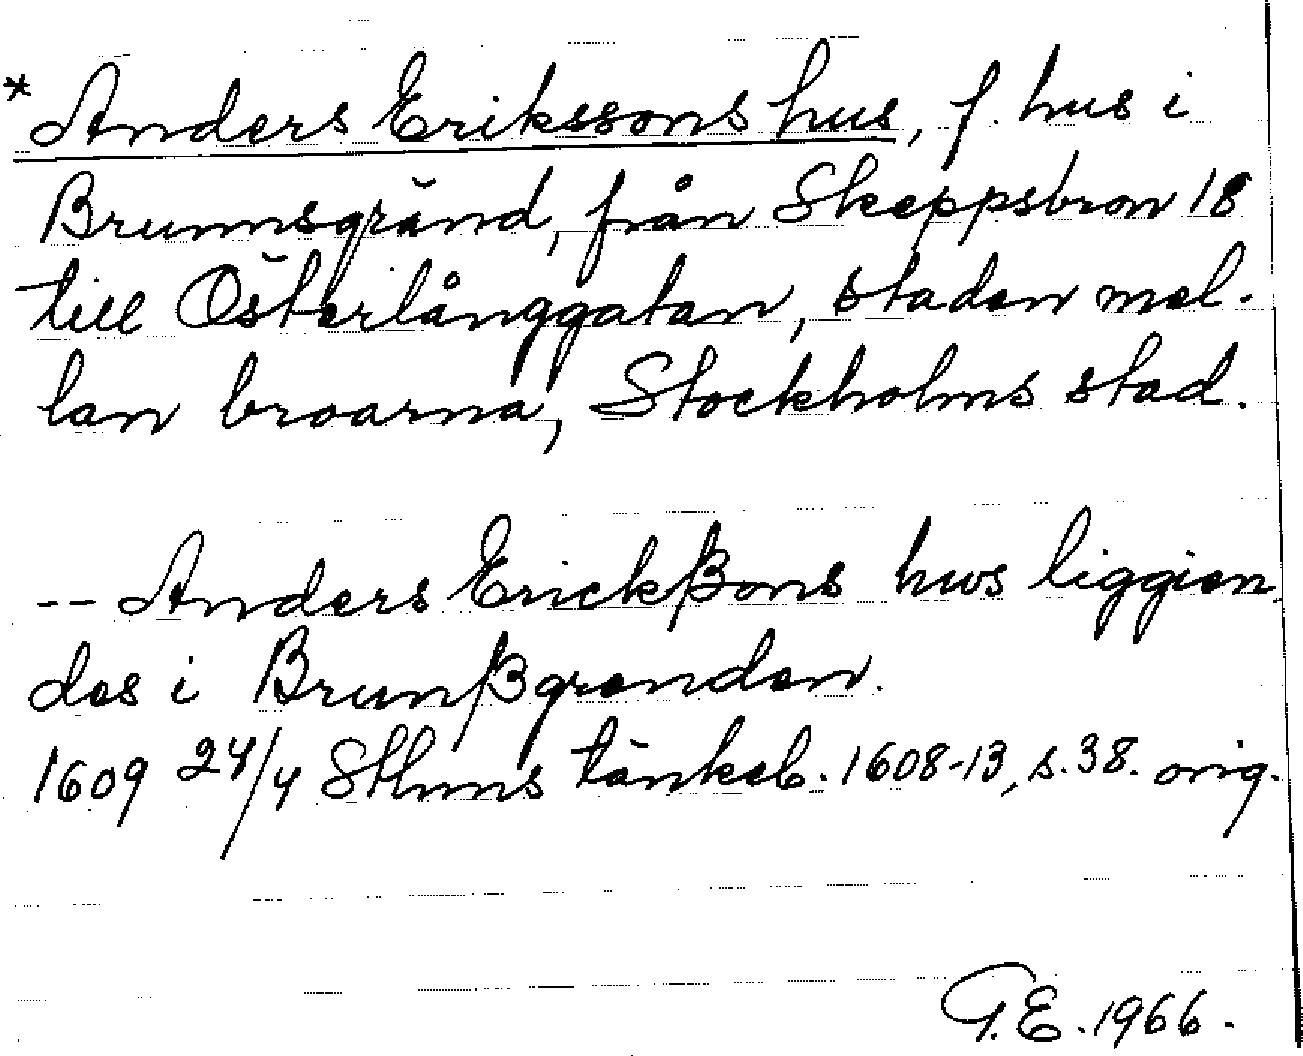 * Anders Erikssons hus, f. hus i
Brunnsgränd, från Skeppsbron 18
till Österlånggatan, staden mel-
lan broarna, Stockholms stad.
-- Anders Erickßons hws liggien
des i Brunßgrenden.
1609 24/4 Sthms tänkeb. 1608-13, s. 38. orig.
G.E. 1966.